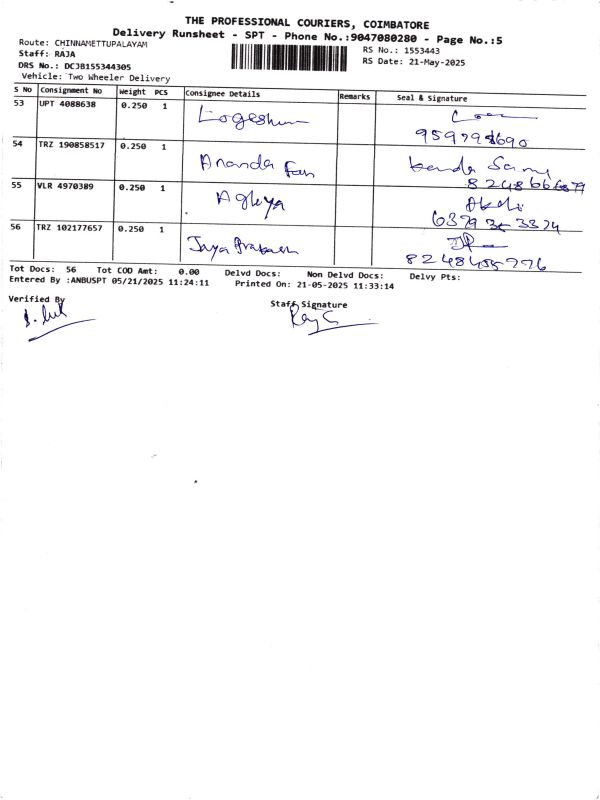 THE PROFESSIONAL COURIERS, COIMBATORE
Delivery Runsheet - SPT - Phone No.:9047080280 - Page No.:5
Route: CHINNAMETTUPALAYAM
Staff: RAJA
DRS No.: DCJB155344305
Vehicle: Two Wheeler Delivery
RS No.: 1553443
RS Date: 21-May-2025
S No Consignment No Weight PCS Consignee Details Remarks Seal & Signature
53 UPT 4088638 0.250 1 Logeshun
54 TRZ 190858517 0.250 1 Ananda Fan
55 VLR 4970389 0.250 1 Agleya
56 TRZ 102177657 0.250 1 Jaya Prakash
8248455776
Tot Docs: 56 Tot COD Amt: 0.00 Delvd Docs: Non Delvd Docs: Delvy Pts:
Entered By :ANBUSPT 05/21/2025 11:24:11 Printed On: 21-05-2025 11:33:14
Verified By
Staff Signature